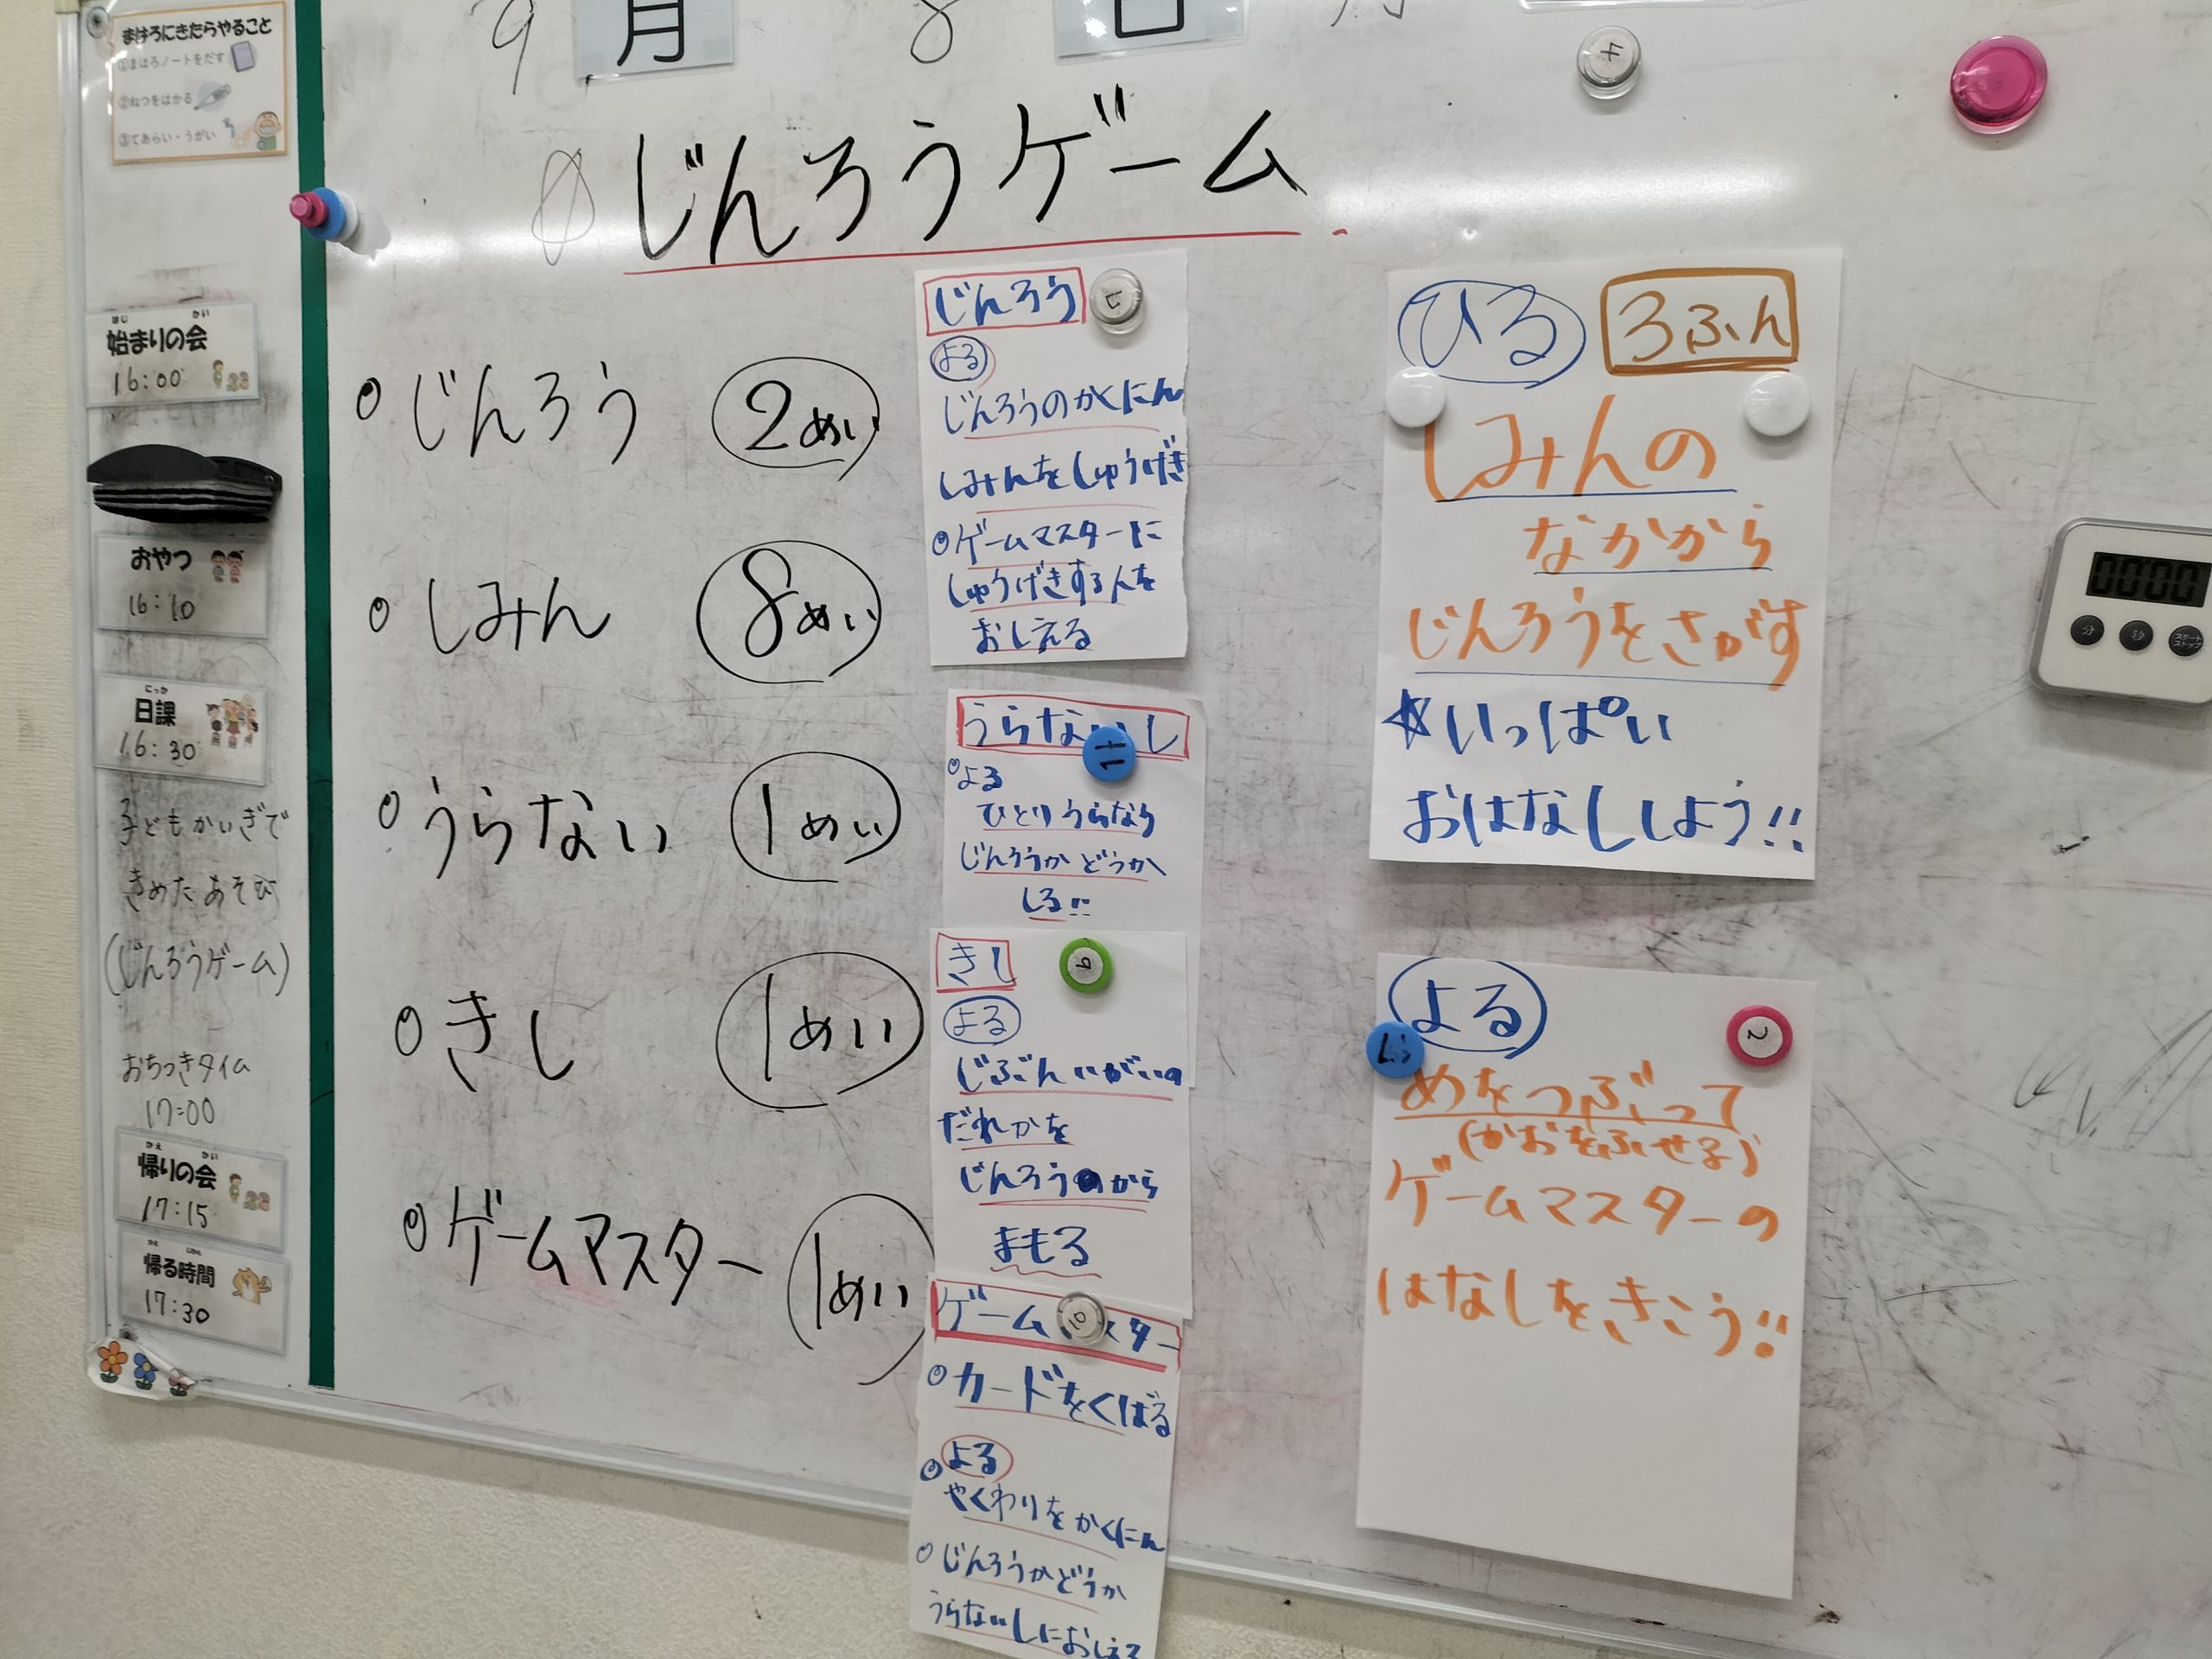 9月8日
まはろにきたらやること
①まはろノートをだす
②ねつをはかる
③てあらい・うがい
始まりの会
はじ かい
16:00
おやつ
16:10
日課
にっか
16:30
子どもかいぎで
きめたあそび
(じんろうゲーム)
おちつきタイム
17:00
帰りの会
かえ かい
17:15
帰る時間
かえ じかん
17:30
じんろうゲーム
じんろう 2めい
しみん 8めい
うらない 1めい
きし 1めい
ゲームマスター 1めい
じんろう
よる
じんろうのかくにん
しみんをしゅうげき
ゲームマスターに
しゅうげきする人を
おしえる
うらない し
よる
ひとりうらなう
じんろうかどうか
しる!!
きし
よる
じぶんいがいの
だれかを
じんろうから
まもる
ゲーム スター
カードをくばる
よる
やくわりをかくにん
じんろうかどうか
うらないしにおしえる
ひる 3ふん
しみんの
なかから
じんろうをさがす
☆いっぱい
おはなししよう!!
よる
めをつぶって
(かおをふせる)
ゲームマスターの
はなしをきこう!!
4
11
9
10
2
00:00
分 秒 スタート
ストップ